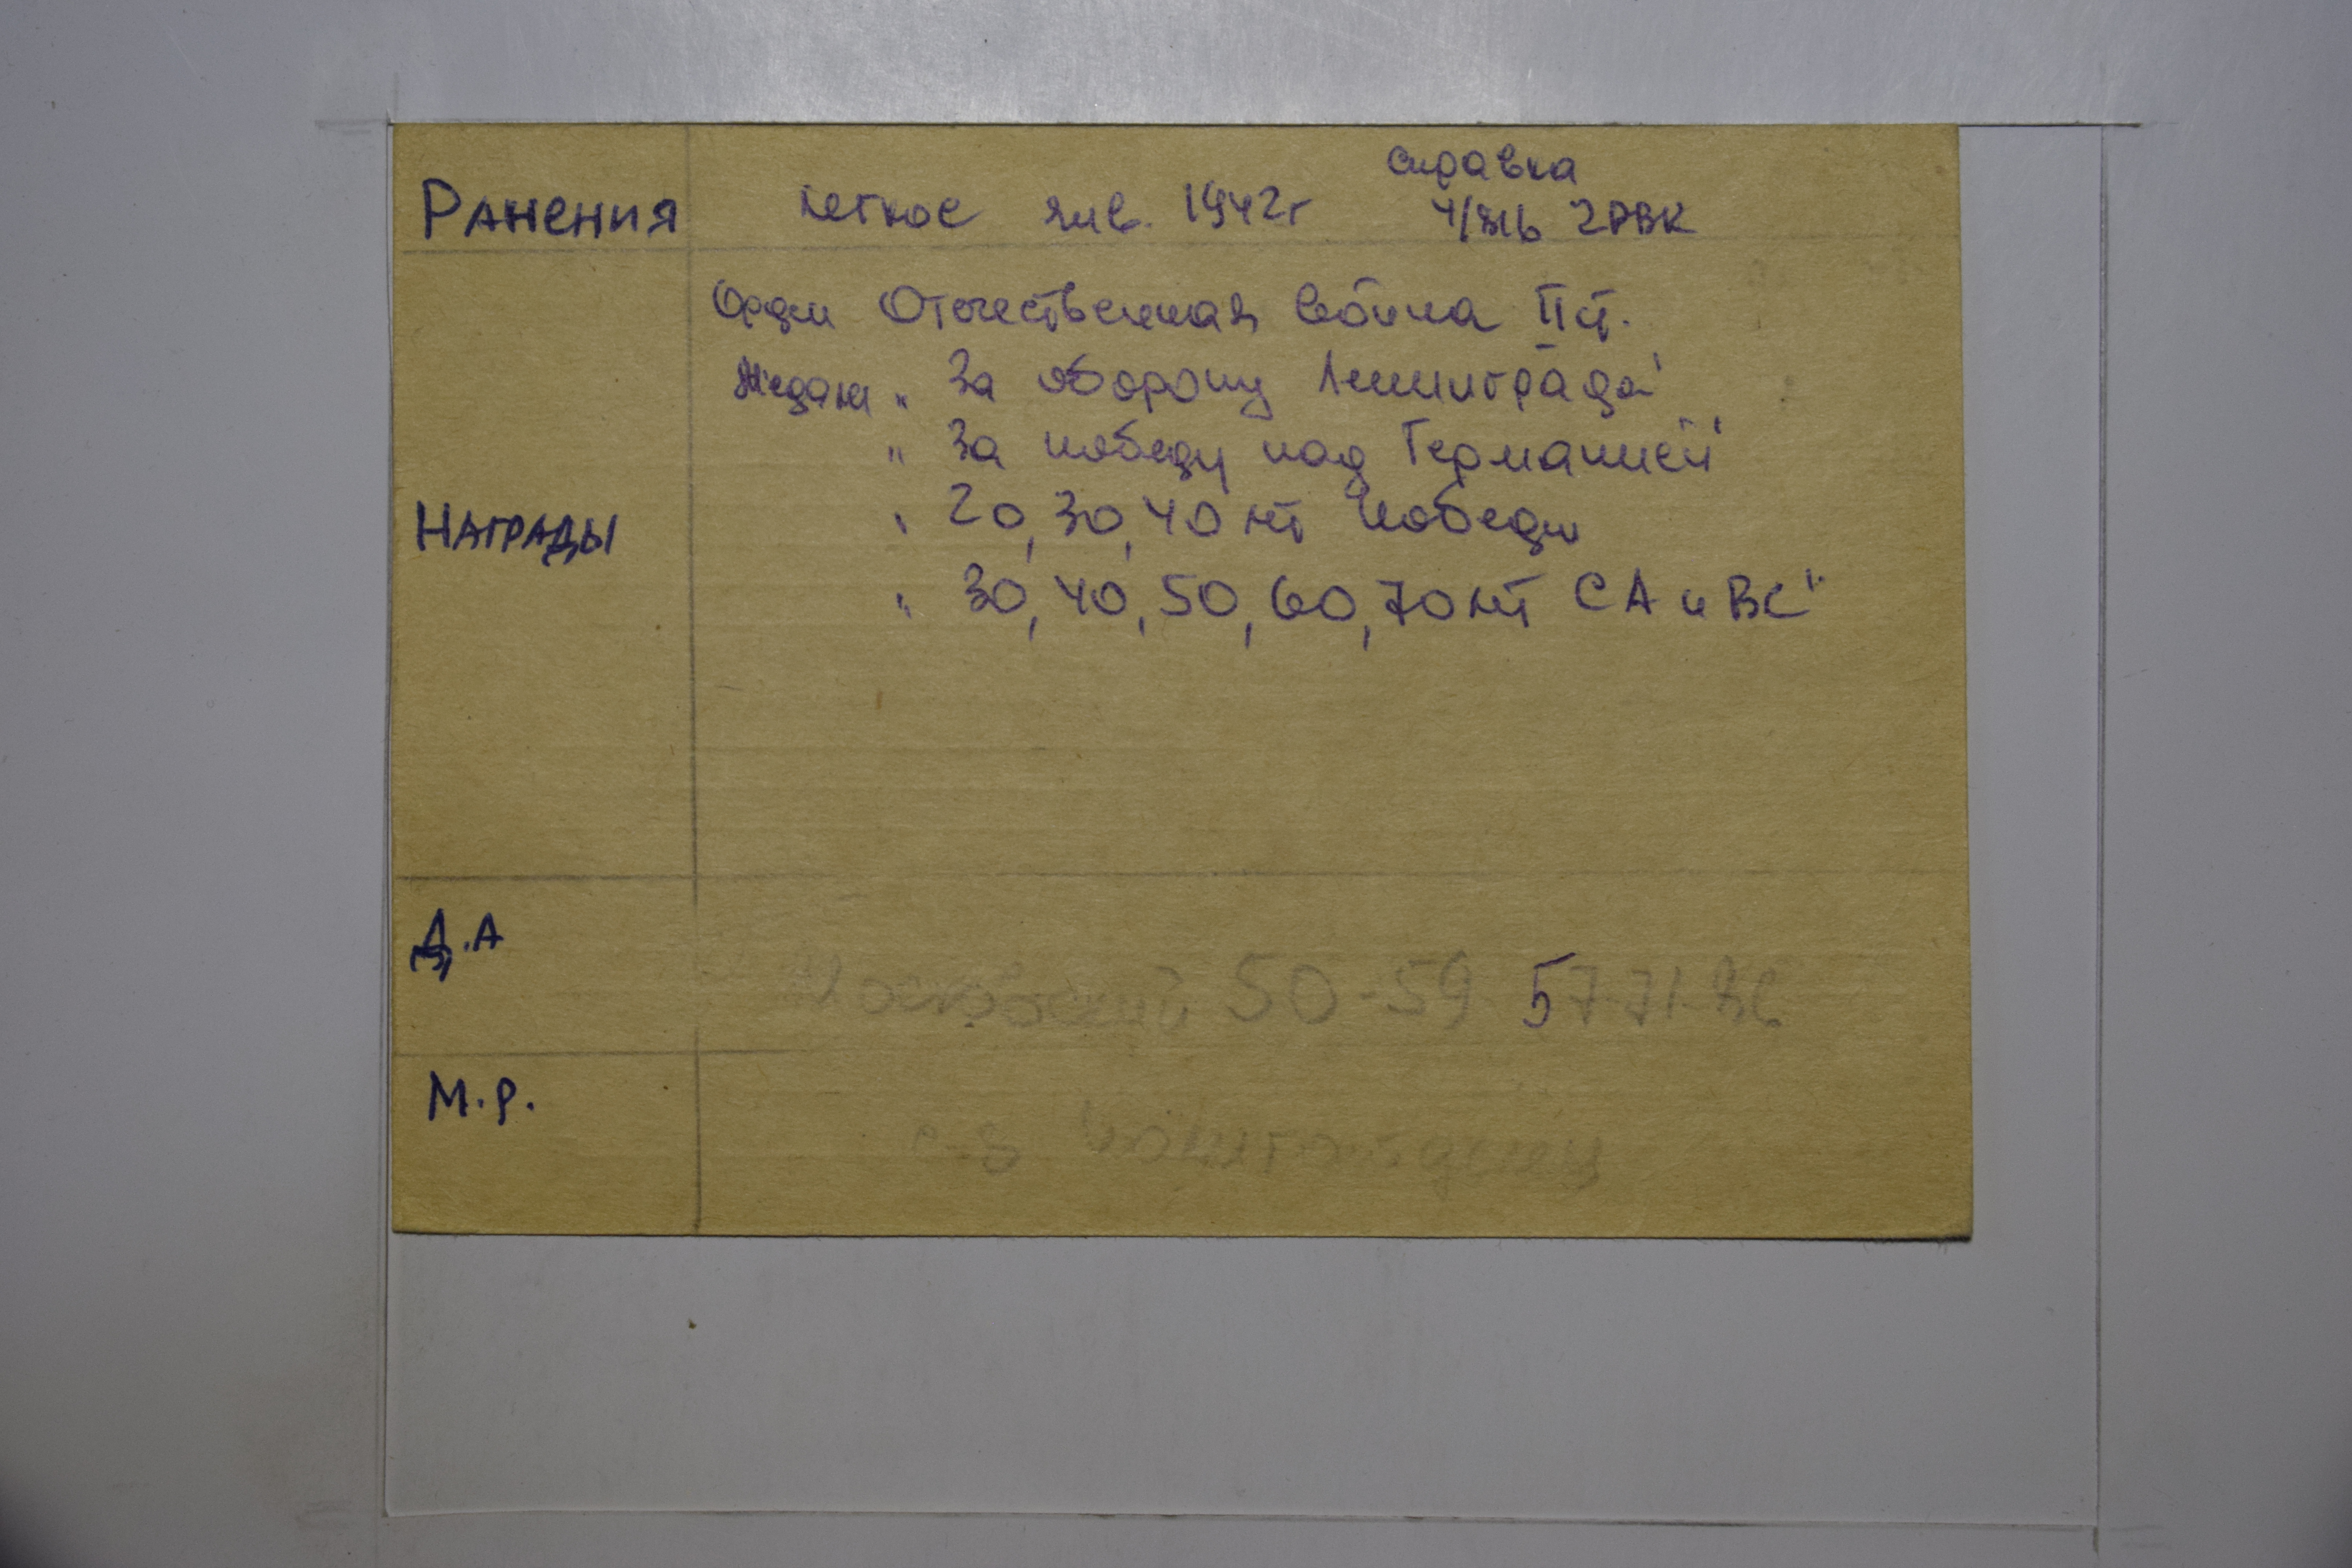 справка
Ранения легкое янв. 1942г РВК
Орден Отечественная война II ст.
Медали „ За оборону Ленинграда"
„ За победу над Германией"
Награды „ 20, 30, 40 лет Победы
„ 30, 40, 50, 60, 70 лет СА и ВС"
Д.А
Московский 50-59 57-71-
М.р.